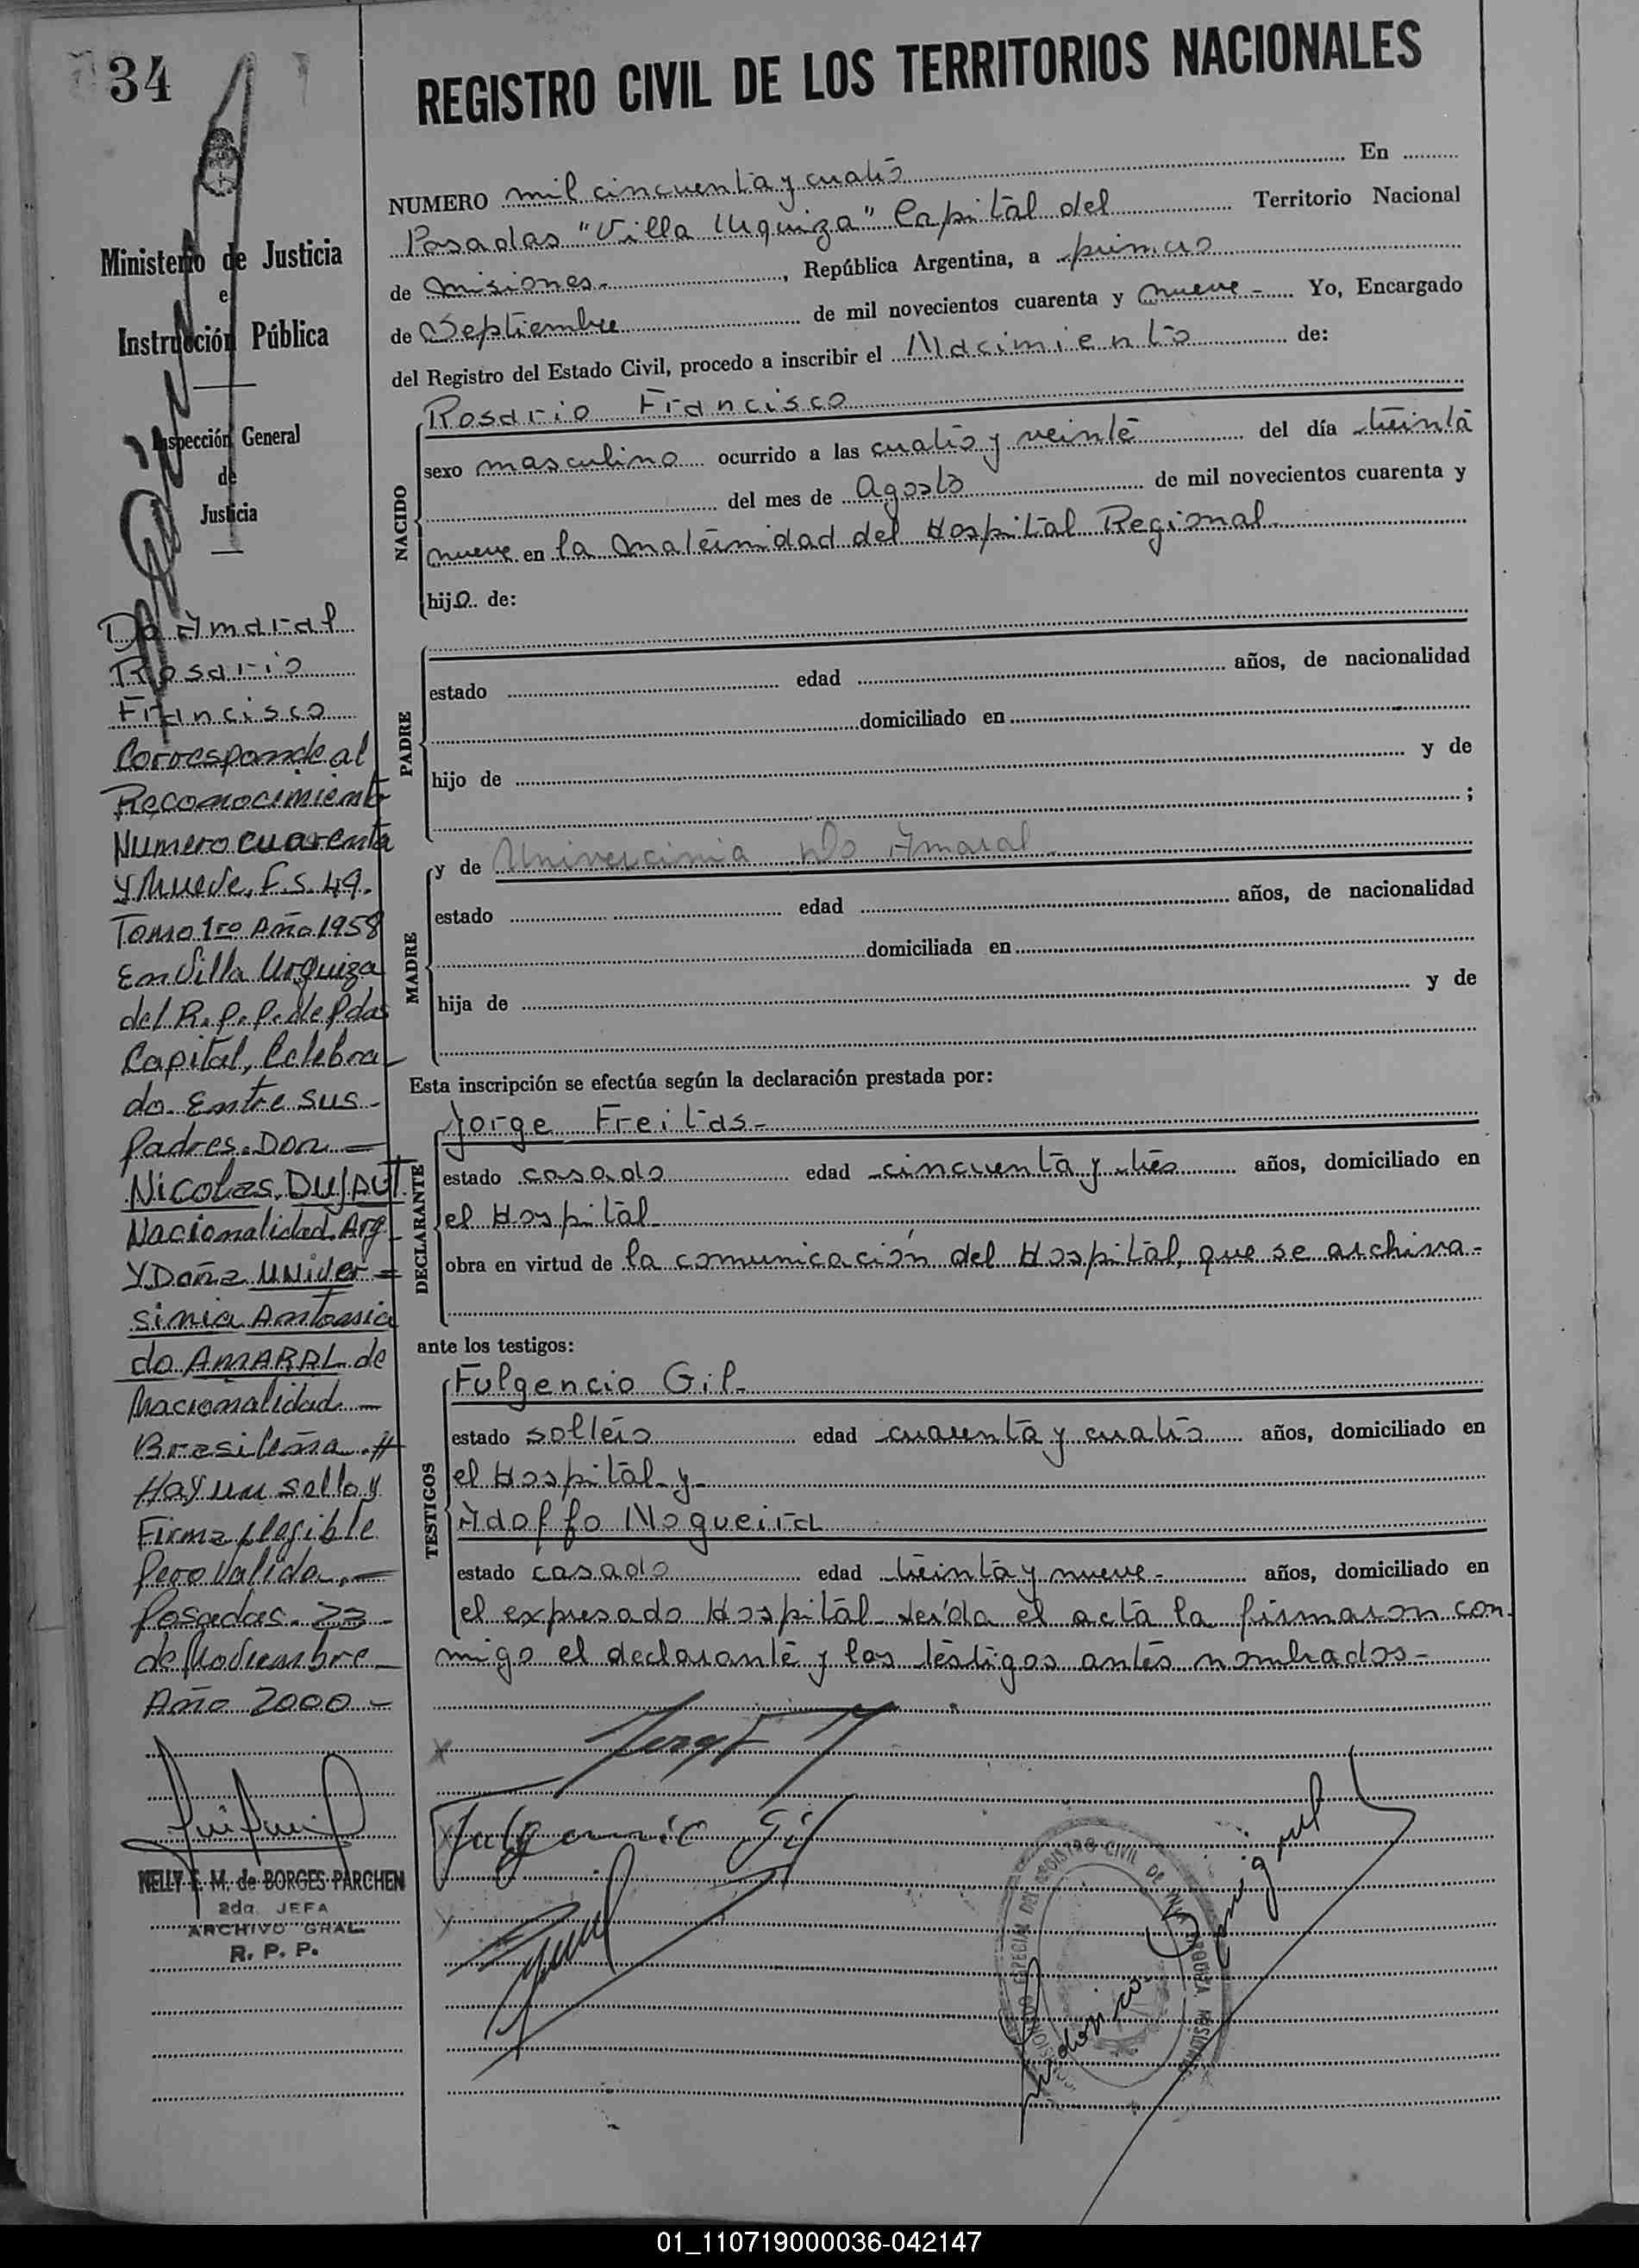 34
REGISTRO CIVIL DE LOS TERRITORIOS NACIONALES
Ministerio de Justicia
e
Instrucción Pública
Inspección General
de
Justicia
Do Amaral
Rosario
Francisco
Corresponde al
Reconocimiento
Numero cuarenta
y Nueve, F.S. 49.
Tomo 1ro Año 1958
En Villa Urquiza
del R.P.P. de Pdas
Capital, Celebra-
do Entre sus-
Padres. Don-
Nicolas, DUJAUT.
Nacionalidad Arg-
Y Doña UNiver=
sinia Antonia
do AMARAL de
Nacionalidad-
Brasileña.#
Hay un sello y
Firma ilegible
Pero Valida.-
Posadas. 23-
de Noviembre-
Año 2000-
NELLY E. M. de BORGES PARCHEN
2da. JEFA
ARCHIVO GRAL.
R. P. P.
NUMERO mil cincuenta y cuatro En
Posadas "Villa Urquiza" Capital del Territorio Nacional
de Misiones- , República Argentina, a primero
de Septiembre de mil novecientos cuarenta y nueve- Yo, Encargado
del Registro del Estado Civil, procedo a inscribir el Nacimiento de:
NACIDO
Rosario Francisco
sexo masculino ocurrido a las cuatro y veinte del día treinta
del mes de Agosto de mil novecientos cuarenta y
nueve en la Maternidad del Hospital Regional-
hijo de:
PADRE
estado edad años, de nacionalidad
domiciliado en
hijo de y de
;
MADRE
y de Univercinia Do Amaral-
estado edad años, de nacionalidad
domiciliada en
hija de y de
Esta inscripción se efectúa según la declaración prestada por:
DECLARANTE
Jorge Freitas-
estado casado edad cincuenta y tres años, domiciliado en
el Hospital-
obra en virtud de la comunicación del Hospital, que se archiva-
ante los testigos:
TESTIGOS
Fulgencio Gil-
estado soltero edad cuarenta y cuatro años, domiciliado en
el Hospital y-
Adolfo Nogueira
estado casado edad treinta y nueve- años, domiciliado en
el expresado Hospital- Leída el acta la firmaron con-
migo el declarante y los testigos antes nombrados-
Fulgencio Gil
REGISTRO CIVIL DE VILLA URQUIZA MISIONES
01_110719000036-042147